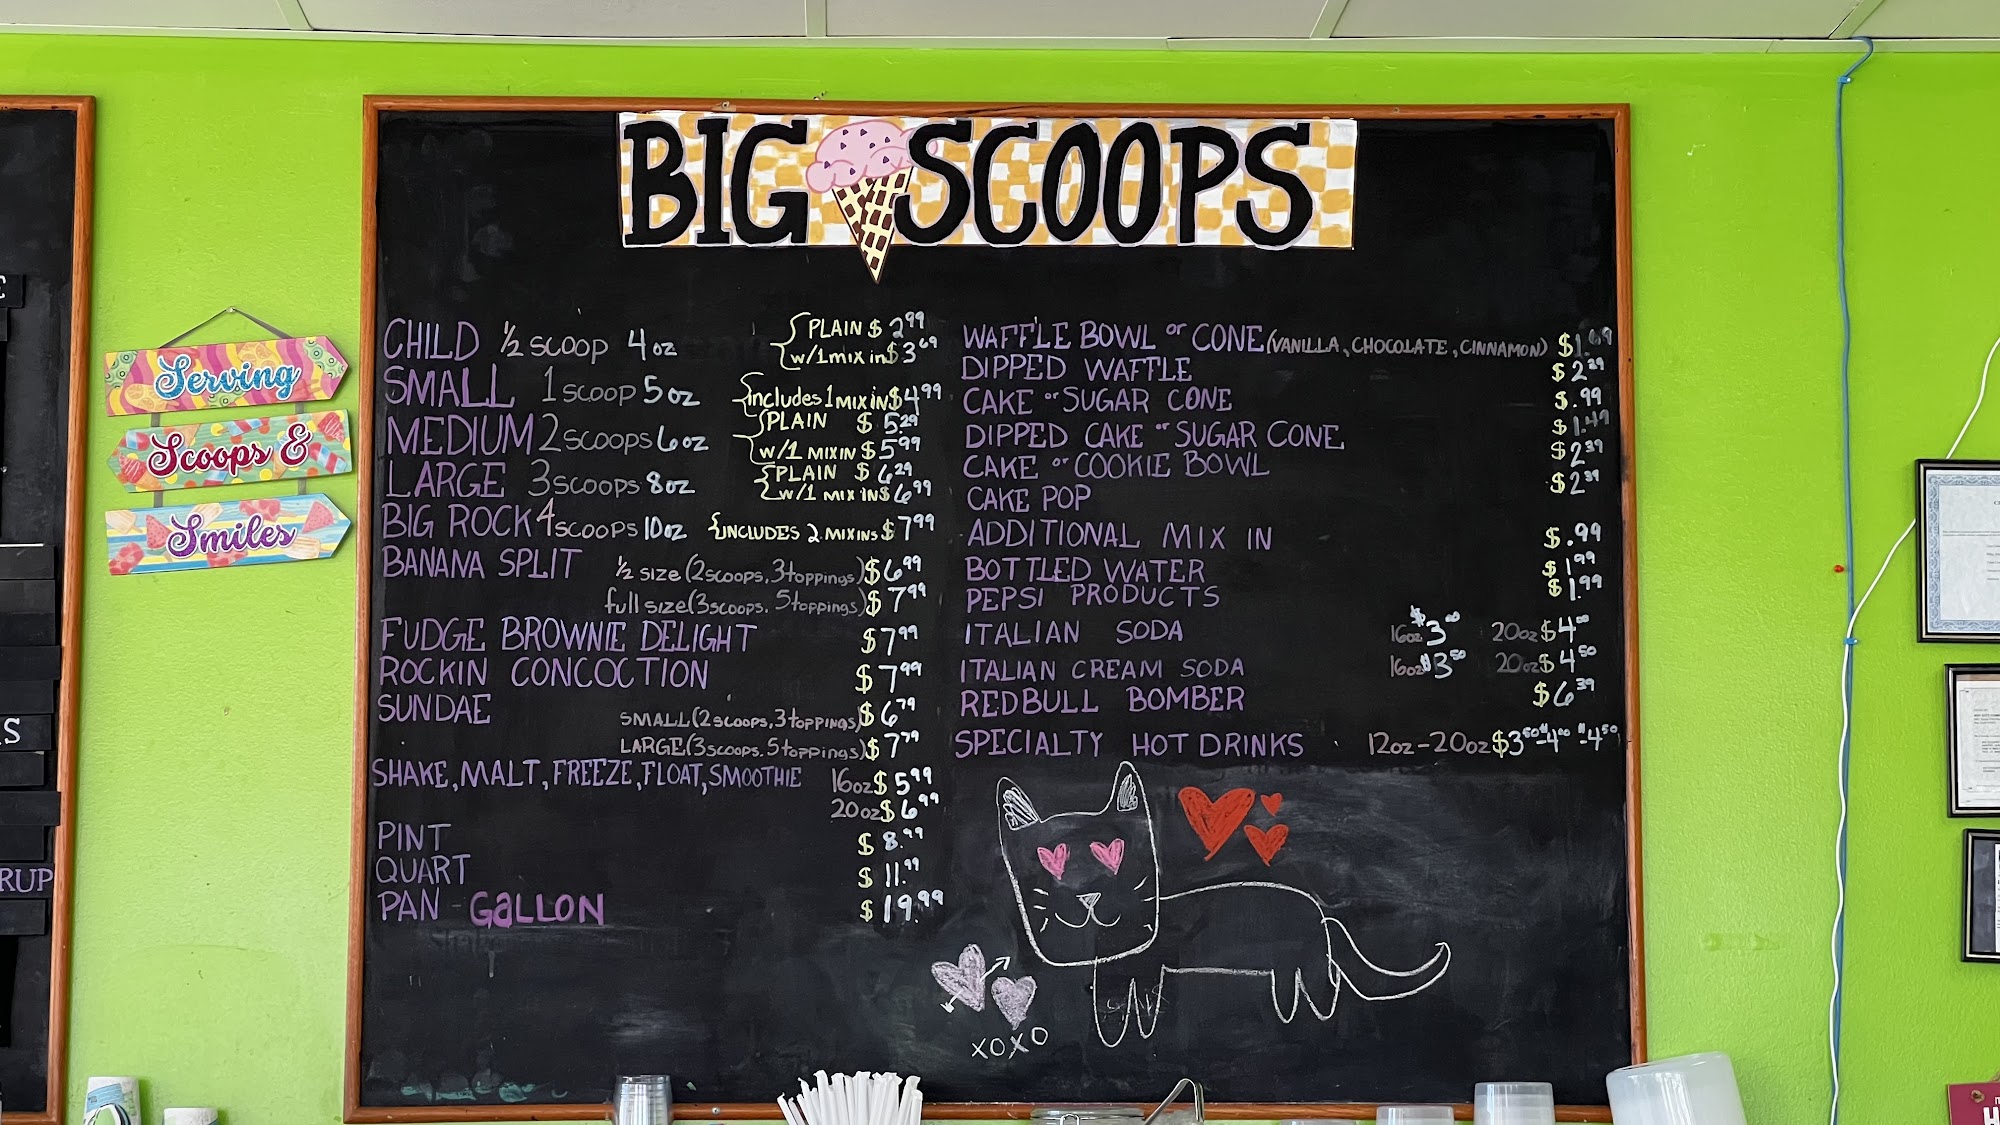 BIG SCOOPS
Serving
Scoops &
Smiles
CHILD ½ SCOOP 4 oz { PLAIN $ 2.99
{ w/1 mix in $ 3.69
SMALL 1 SCOOP 5 oz { includes 1 MIX IN $ 4.99
MEDIUM 2 SCOOPS 6 oz { PLAIN $ 5.29
{ w/1 MIX IN $ 5.99
LARGE 3 SCOOPS 8 oz { PLAIN $ 6.29
{ w/1 MIX IN $ 6.99
BIG ROCK 4 SCOOPS 10 oz { INCLUDES 2 MIX INS $ 7.99
BANANA SPLIT ½ SIZE (2 SCOOPS, 3 toppings) $ 6.99
full SIZE (3 SCOOPS, 5 toppings) $ 7.99
FUDGE BROWNIE DELIGHT $ 7.99
ROCKIN CONCOCTION $ 7.99
SUNDAE SMALL (2 SCOOPS, 3 toppings) $ 6.79
LARGE (3 SCOOPS, 5 toppings) $ 7.79
SHAKE, MALT, FREEZE, FLOAT, SMOOTHIE 16oz $ 5.99
20oz $ 6.99
PINT $ 8.99
QUART $ 11.99
PAN - GALLON $ 19.99
WAFFLE BOWL or CONE (VANILLA, CHOCOLATE, CINNAMON) $1.69
DIPPED WAFFLE $ 2.29
CAKE or SUGAR CONE $ .99
DIPPED CAKE or SUGAR CONE $ 1.49
CAKE or COOKIE BOWL $ 2.39
CAKE POP $ 2.39
ADDITIONAL MIX IN $ .99
BOTTLED WATER $ 1.99
PEPSI PRODUCTS $ 1.99
ITALIAN SODA 16oz $3.00 20oz $4.00
ITALIAN CREAM SODA 16oz $3.50 20oz $4.50
REDBULL BOMBER $ 6.39
SPECIALTY HOT DRINKS 12oz - 20oz $3.50 - 4.00 - 4.50
XOXO
E
S
RUP